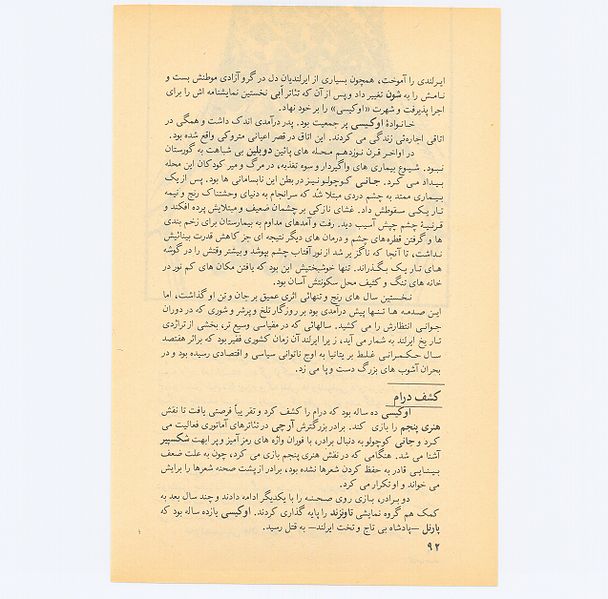 ایرلندی را آموخت، همچون بسیاری از ایرلندیان دل در گرو آزادی موطنش بست و
نامش را به شون تغییر داد و پس از آن که تئاتر آبی نخستین نمایشنامه اش را برای
اجرا پذیرفت و شهرت «اوکیسی» را بر خود نهاد.
خانوادهٔ اوکیسی پر جمعیت بود. پدر درآمدی اندک داشت و همگی در
اتاقی اجاره‌ئی زندگی می کردند. این اتاق در قصر اعیانی متروکی واقع شده بود.
در اواخر قرن نوزدهم محله های پائین دوبلین بی شباهت به گورستان
نبود. شیوع بیماری های واگیردار و سوء تغذیه، در مرگ و میر کودکان این محله
بیداد می کرد. جانی کوچولو نیز در بطن این نابسامانی ها بود. پس از یک
بیماری ممتد به چشم دردی مبتلا شد که سرانجام به دنیای وحشتناک رنج و نیمه
تاریکی سقوطش داد. غشای نازکی بر چشمان ضعیف و مبتلایش پرده افکند و
قرنیهٔ چشم چپش آسیب دید. رفت و آمدهای مداوم به بیمارستان برای زخم بندی
ها و گرفتن قطره‌های چشم و درمان های دیگر نتیجه ای جز کاهش قدرت بینائیش
نداشت، تا آنجا که ناگزیر شد از نور آفتاب چشم بپوشد و بیشتر وقتش را در گوشه
های تاریک بگذراند. تنها خوشبختیش این بود که یافتن مکان های کم نور در
خانه های تنگ و کثیف محل سکونتش آسان بود.
نخستین سال های رنج و تنهائی اثری عمیق بر جان و تن او گذاشت، اما
این صدمه ها تنها پیش درآمدی بود بر روزگار تلخ و پرشر و شوری که در دوران
جوانی انتظارش را می کشید. سالهائی که در مقیاسی وسیع تر، بخشی از تراژدی
تاریخ ایرلند به شمار می آید، زیرا ایرلند آن زمان کشوری فقیر بود که براثر هفتصد
سال حکمرانی غلط بریتانیا به اوج ناتوانی سیاسی و اقتصادی رسیده بود و در
بحران آشوب های بزرگ دست و پا می زد.
کشف درام
اوکیسی ده ساله بود که درام را کشف کرد و تقریباً فرصتی یافت تا نقش
هنری پنجم را بازی کند. برادر بزرگترش آرچی در تئاترهای آماتوری فعالیت می
کرد و جانی کوچولو به دنبال برادر، با فوران واژه های رمزآمیز و پر ابهت شکسپیر
آشنا می شد. هنگامی که در نقش هنری پنجم بازی می کرد، چون به علت ضعف
بینایی قادر به حفظ کردن شعرها نشده بود، برادر از پشت صحنه شعرها را برایش
می خواند و او تکرار می کرد.
دو برادر، بازی روی صحنه را با یکدیگر ادامه دادند و چند سال بعد به
کمک هم گروه نمایشی تاونزند را پایه گذاری کردند. اوکیسی یازده ساله بود که
پارنل —پادشاه بی تاج و تخت ایرلند— به قتل رسید.
۹۲